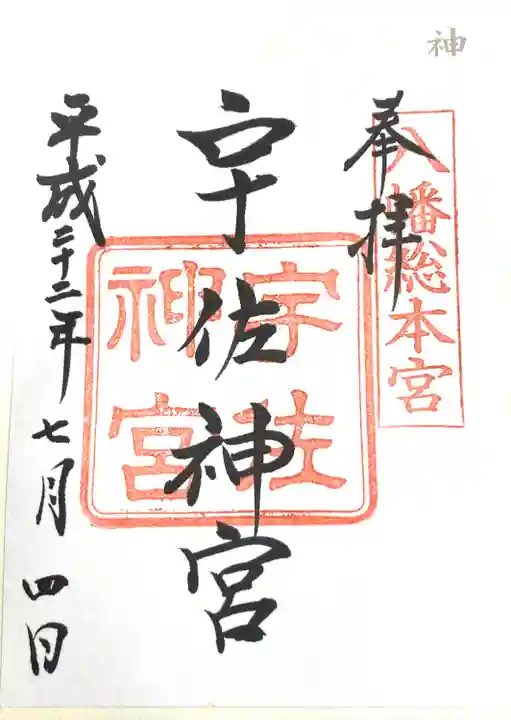 神
八幡総本宮
奉拝
宇佐神宮
宇佐
神宮
平成二十二年七月四日